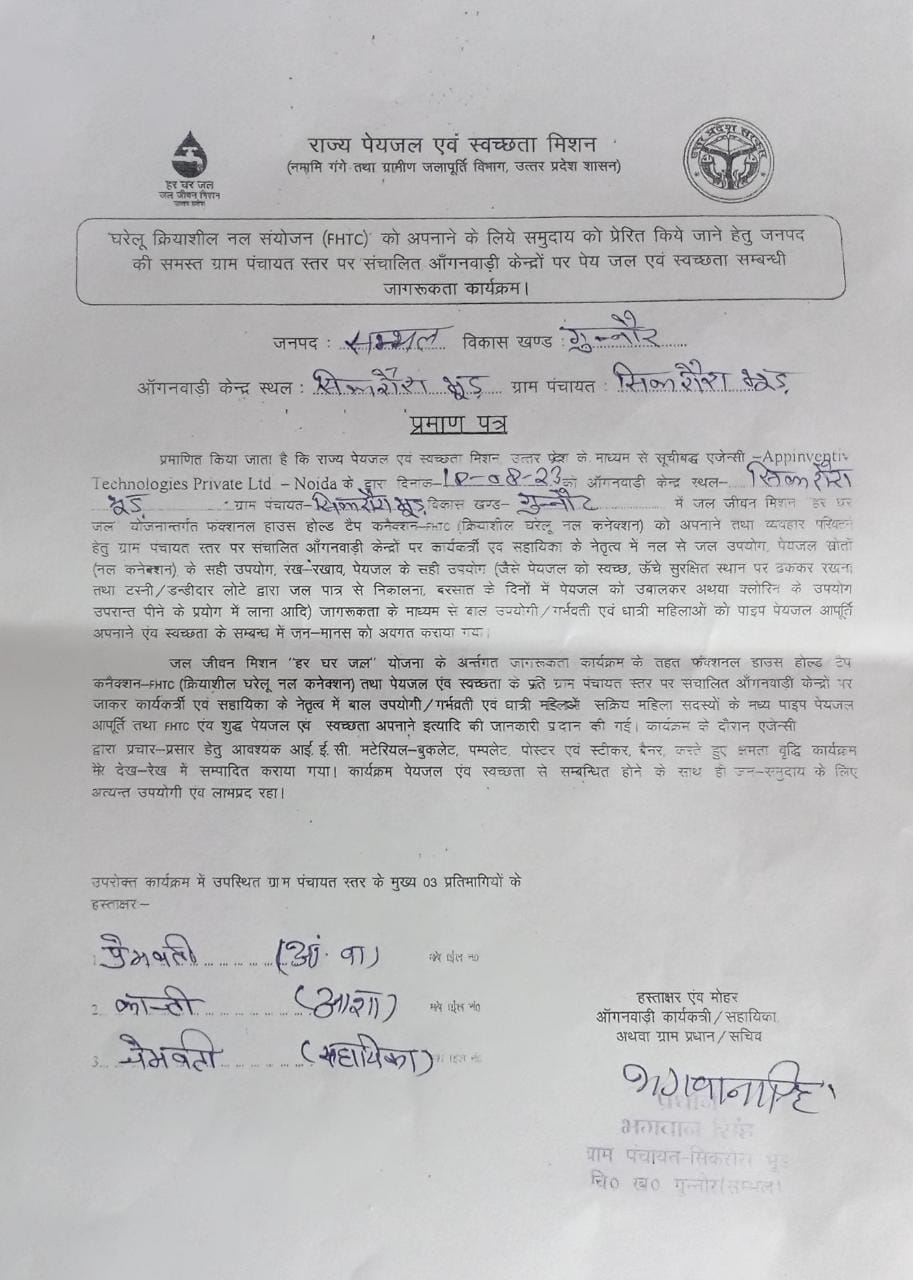 हर घर जल
जल जीवन मिशन
उत्तर प्रदेश
राज्य पेयजल एवं स्वच्छता मिशन
(नमामि गंगे तथा ग्रामीण जलापूर्ति विभाग, उत्तर प्रदेश शासन)
उत्तर प्रदेश सरकार
घरेलू क्रियाशील नल संयोजन (FHTC) को अपनाने के लिये समुदाय को प्रेरित किये जाने हेतु जनपद
की समस्त ग्राम पंचायत स्तर पर संचालित आँगनवाड़ी केन्द्रों पर पेय जल एवं स्वच्छता सम्बन्धी
जागरूकता कार्यक्रम।
जनपद : सम्भल विकास खण्ड : गुन्नौर
आँगनवाड़ी केन्द्र स्थल : सिकरौरा भूड़ ग्राम पंचायत : सिकरौरा भूड़
प्रमाण पत्र
प्रमाणित किया जाता है कि राज्य पेयजल एवं स्वच्छता मिशन उत्तर प्रदेश के माध्यम से सूचीबद्ध एजेन्सी –Appinventiv
Technologies Private Ltd – Noida के द्वारा दिनांक-08-23 को आँगनवाड़ी केन्द्र स्थल- सिकरौरा
भूड़ ग्राम पंचायत- सिकरौरा भूड़ विकास खण्ड- गुन्नौर में जल जीवन मिशन हर घर
जल योजनान्तर्गत फंक्शनल हाउस होल्ड टैप कनैक्शन–FHTC (क्रियाशील घरेलू नल कनेक्शन) को अपनाने तथा व्यवहार परिवर्तन
हेतु ग्राम पंचायत स्तर पर संचालित आँगनवाड़ी केन्द्रों पर कार्यकर्त्री एवं सहायिका के नेतृत्व में नल से जल उपयोग, पेयजल स्रोतों
(नल कनेक्शन) के सही उपयोग, रख–रखाव, पेयजल के सही उपयोग (जैसे पेयजल को स्वच्छ, ऊँचे सुरक्षित स्थान पर ढककर रखना
तथा टस्नी/डन्डीदार लोटे द्वारा जल पात्र से निकालना, बरसात के दिनों में पेयजल को उबालकर अथवा क्लोरिन के उपयोग
उपरान्त पीने के प्रयोग में लाना आदि) जागरूकता के माध्यम से बाल उपयोगी/गर्भवती एवं धात्री महिलाओं को पाइप पेयजल आपूर्ति
अपनाने एंव स्वच्छता के सम्बन्ध में जन–मानस को अवगत कराया गया।
जल जीवन मिशन "हर घर जल" योजना के अर्न्तगत जागरूकता कार्यक्रम के तहत फंक्शनल हाउस होल्ड टैप
कनैक्शन–FHTC (क्रियाशील घरेलू नल कनेक्शन) तथा पेयजल एंव स्वच्छता के प्रति ग्राम पंचायत स्तर पर संचालित आँगनवाड़ी केन्द्रों पर
जाकर कार्यकर्त्री एवं सहायिका के नेतृत्व में बाल उपयोगी/गर्भव्रती एवं धात्री महिलाओं सक्रिय महिला सदस्यों के मध्य पाइप पेयजल
आपूर्ति तथा FHTC एंव शुद्ध पेयजल एंव स्वच्छता अपनाने इत्यादि की जानकारी प्रदान की गई। कार्यक्रम के दौरान एजेन्सी
द्वारा प्रचार–प्रसार हेतु आवश्यक आई. ई. सी. मटेरियल–बुकलेट, पम्पलेट, पोस्टर एवं स्टीकर, बैनर, करते हुए क्षमता वृद्धि कार्यक्रम
मेरे देख–रेख में सम्पादित कराया गया। कार्यक्रम पेयजल एंव स्वच्छता से सम्बन्धित होने के साथ ही जन–समुदाय के लिए
अत्यन्त उपयोगी एंव लाभप्रद रहा।
उपरोक्त कार्यक्रम में उपस्थित ग्राम पंचायत स्तर के मुख्य 03 प्रतिभागियों के
हस्ताक्षर –
1. प्रेमवती (आं. वा)
2. कान्ती (आशा)
3. प्रेमवती (सहायिका)
हस्ताक्षर एंव मोहर
आँगनवाड़ी कार्यकत्री/सहायिका
अथवा ग्राम प्रधान/सचिव
भगवान सिंह
प्रधान
भगवान सिंह
ग्राम पंचायत-सिकरौरा भूड़
वि० ख० गुन्नौर(सम्भल)